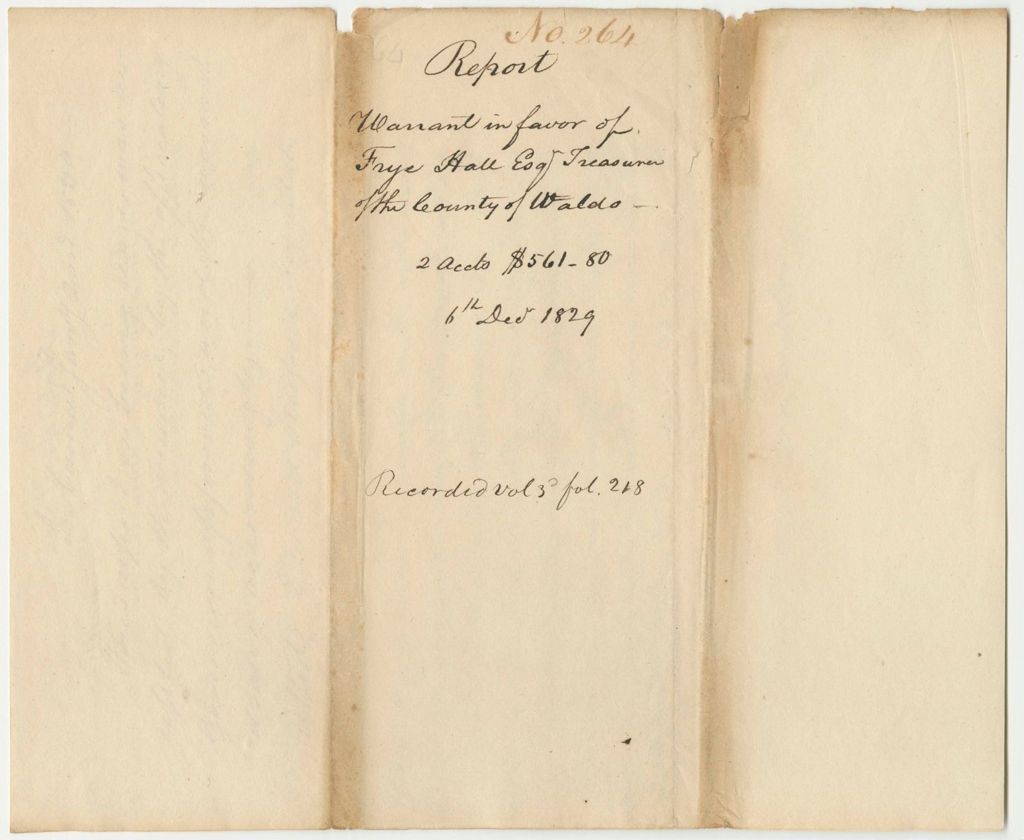 No. 264
Report
Warrant in favor of
Frye Hall Esqr Treasurer
of the County of Waldo —
2 Accts $561-80
6th Decr 1829
Recorded Vol 3d fol. 218